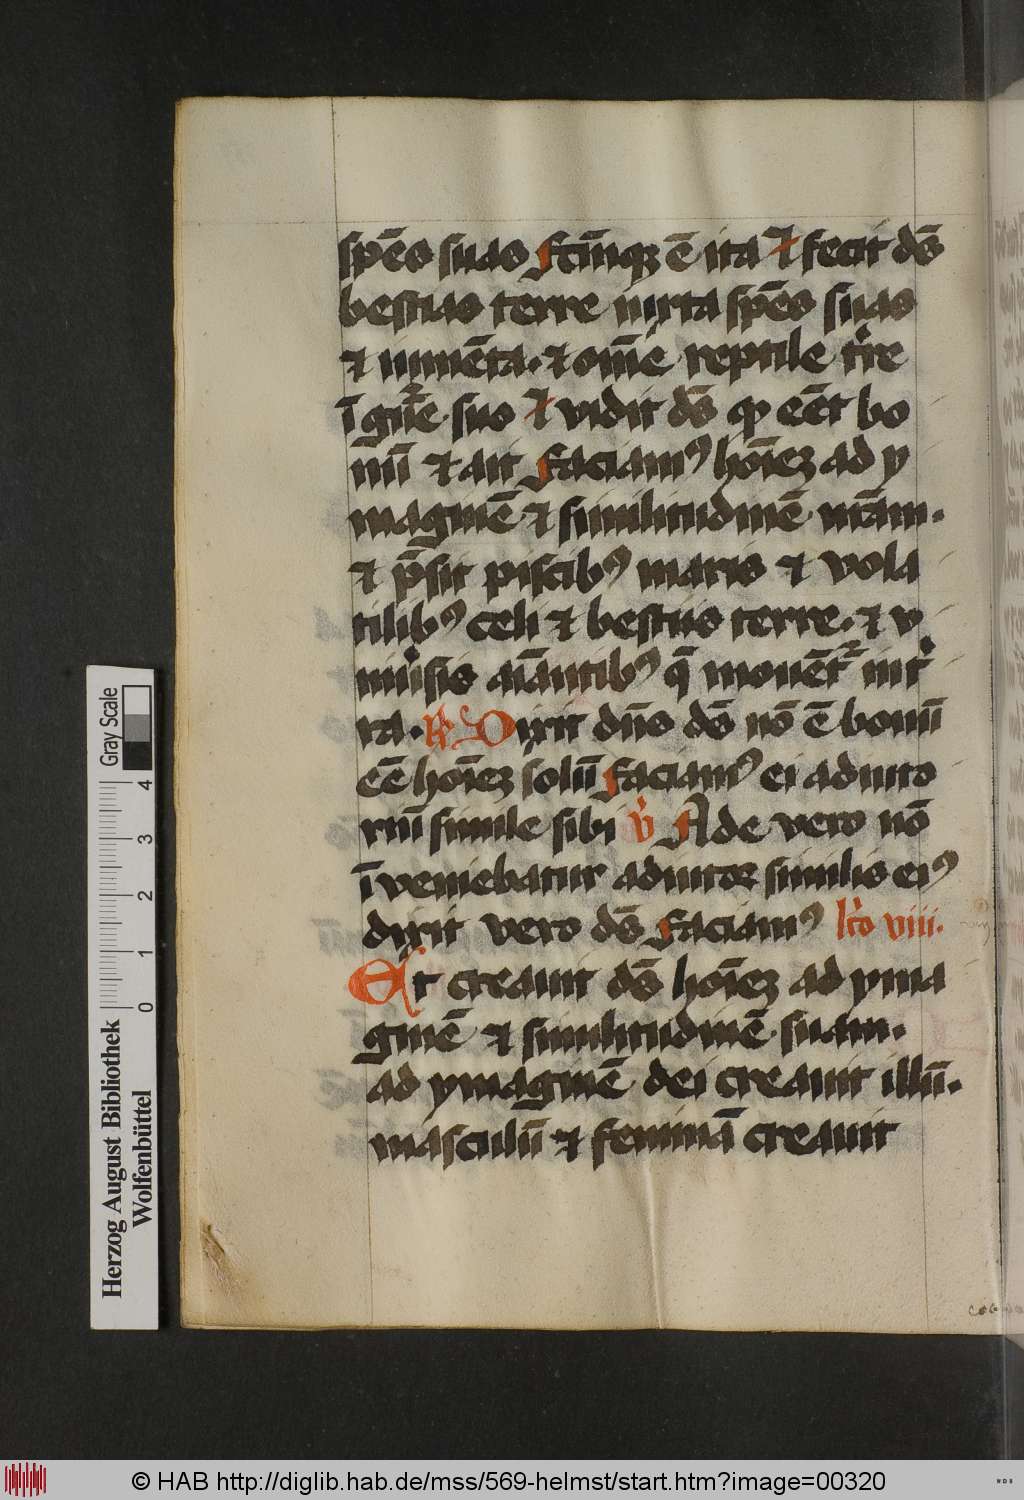 spēs suas Fc̄mqꝫ ē ita Et fecit ds̄
bestias terre iuxta spēs suas
et iumēta. et om̄e reptile tr̄re
ī gn̄e suo Et vidit ds̄ ꝙ eēt bo
nū et ait Faciamꝰ hoīeꝫ ad y
maginē et similitudinē nr̄am.
et p̄sit piscibꝰ maris et vola
tilibꝰ celi et bestiis terre. et v
niuˀsis aīantibꝰ q̄ mouēt᷑ in tˀ
ra. R̸ Dixit dn̄s ds̄ nō ē bonū
eē hoīeꝫ solū Faciamꝰ ei adiuto
riū simile sibi v̾ Ade vero nō
īveniebatur adiutor similis eiꝰ
dixit vero ds̄ Faciamꝰ lc̄o viii.
Et creauit ds̄ hoīeꝫ ad yma
ginē et similitudinē suam.
ad ymaginē dei creauit illū.
masculū et feminā creauit
Gray Scale
0 1 2 3 4
Herzog August Bibliothek
Wolfenbüttel
© HAB http://diglib.hab.de/mss/569-helmst/start.htm?image=00320